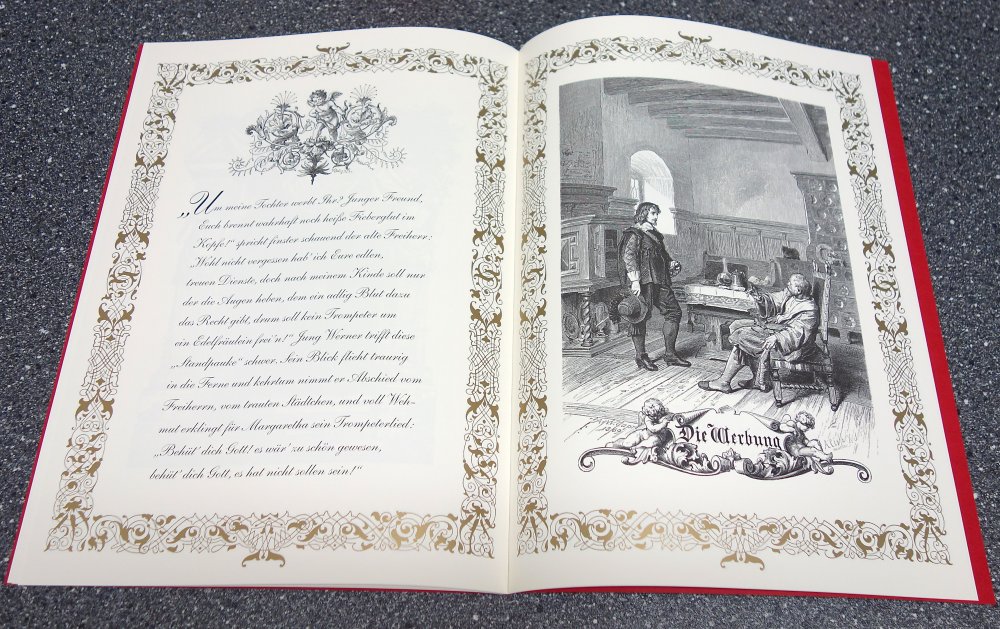 „Um meine Tochter werbt Ihr? Junger Freund,
Euch brennt wahrhaft noch heiße Fieberglut im
Kopfe!“ spricht finster schauend der alte Freiherr:
„Wohl nicht vergessen hab' ich Eure edlen,
treuen Dienste, doch nach meinem Kinde soll nur
der die Augen heben, dem ein adlig Blut dazu
das Recht gibt, drum soll kein Trompeter um
ein Edelfräulein frei'n!“ Jung Werner trifft diese
„Standpauke“ schwer. Sein Blick flieht traurig
in die Ferne und kehrtum nimmt er Abschied vom
Freiherrn, vom trauten Städtchen, und voll Weh-
mut erklingt für Margaretha sein Trompeterlied:
„Behüt' dich Gott! es wär' zu schön gewesen,
behüt' dich Gott, es hat nicht sollen sein!“
Die Werbung